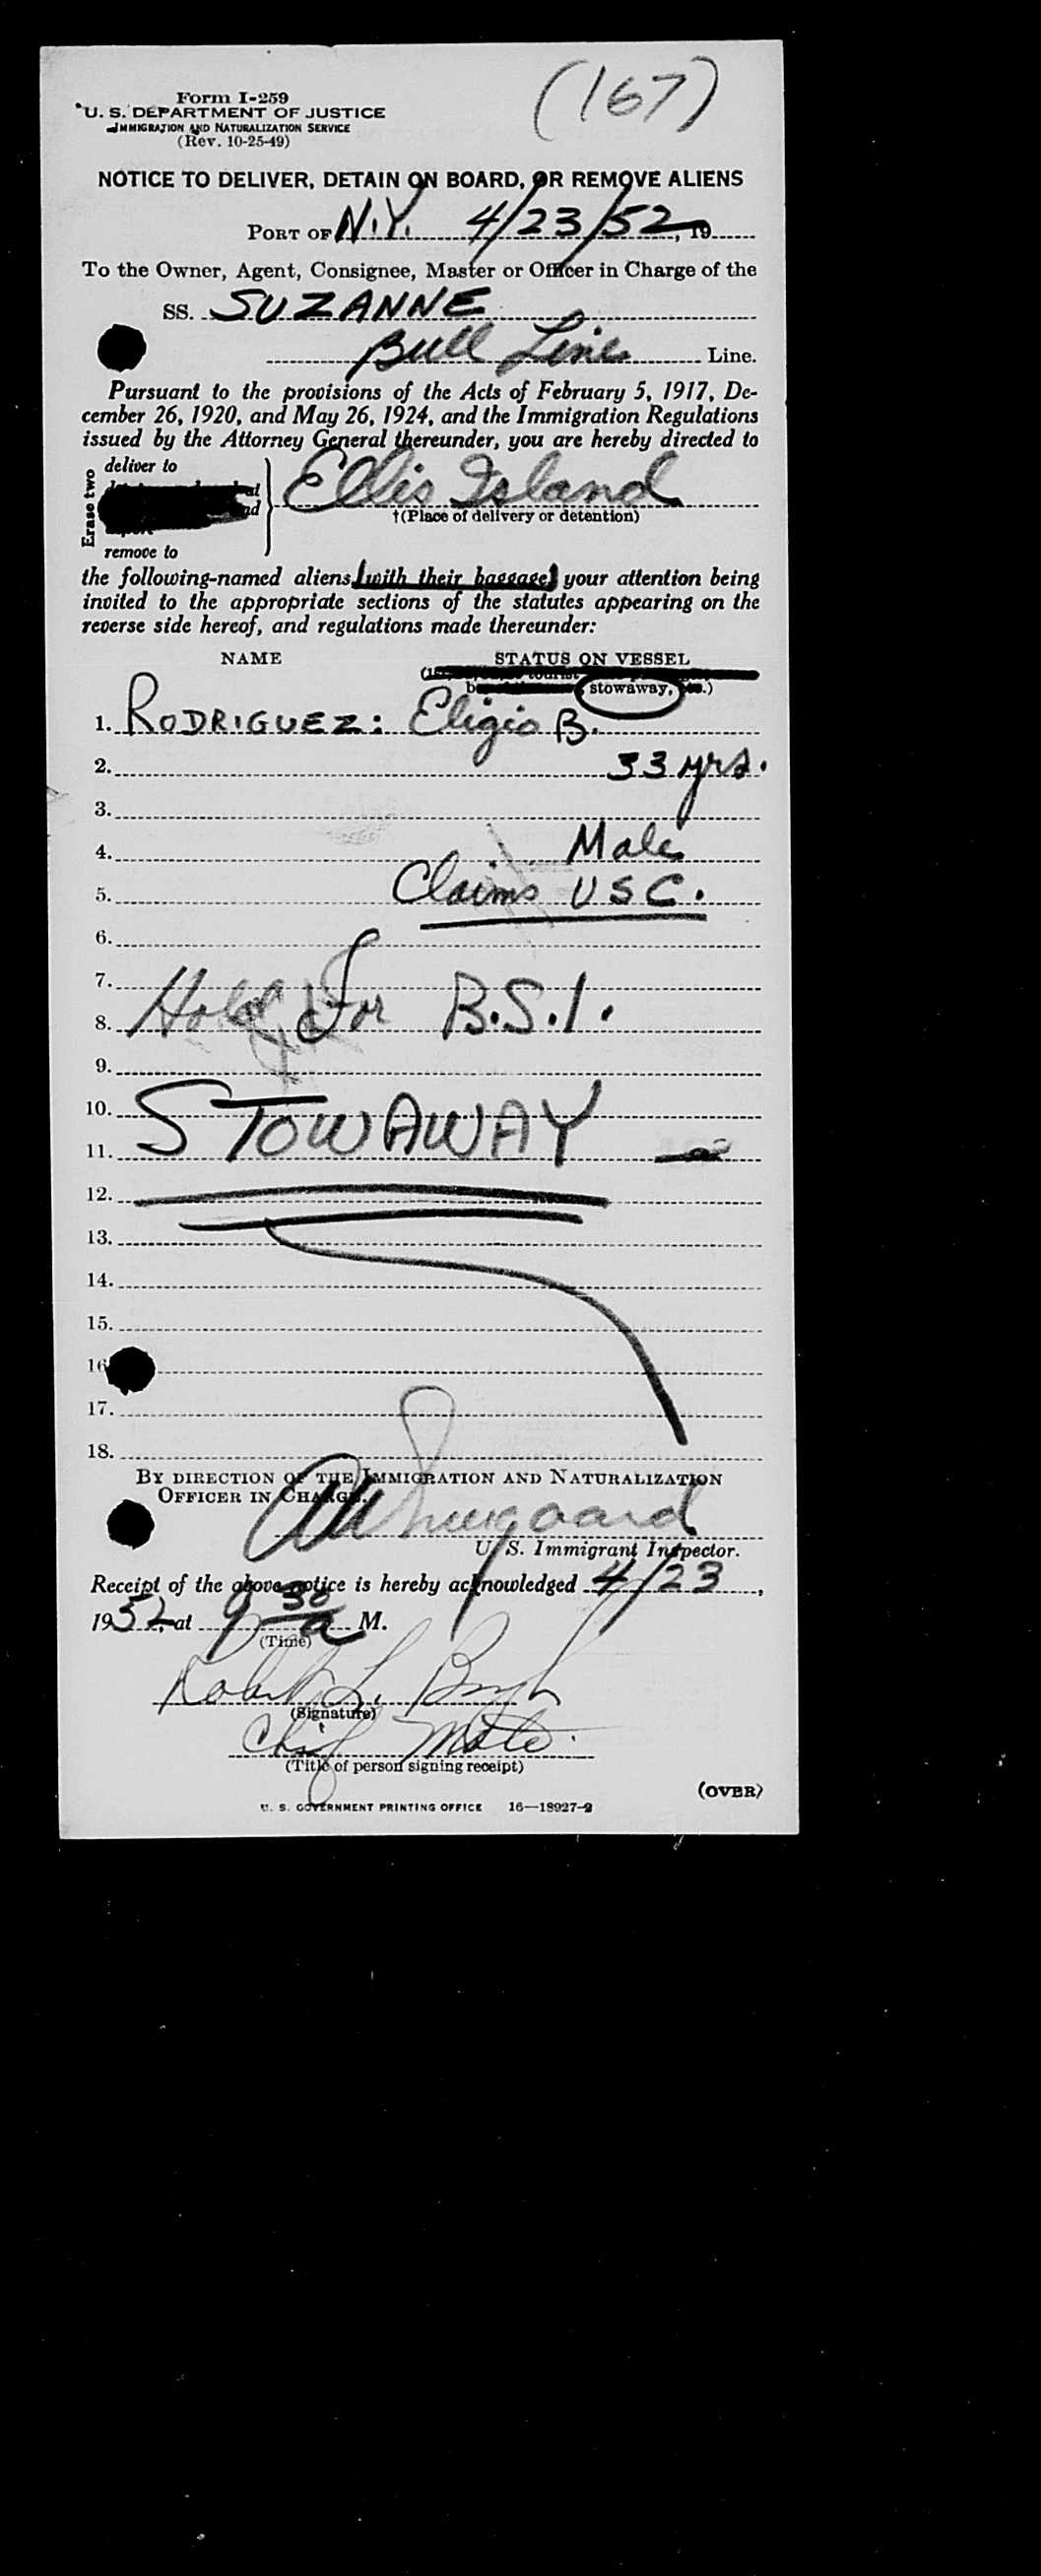 (167)
Form I-259
U. S. DEPARTMENT OF JUSTICE
IMMIGRATION AND NATURALIZATION SERVICE
(Rev. 10-25-49)
NOTICE TO DELIVER, DETAIN ON BOARD, OR REMOVE ALIENS
PORT OF N.Y. 4/23/52, 19
To the Owner, Agent, Consignee, Master or Officer in Charge of the
SS. SUZANNE
Bull Line Line.
Pursuant to the provisions of the Acts of February 5, 1917, De-
cember 26, 1920, and May 26, 1924, and the Immigration Regulations
issued by the Attorney General thereunder, you are hereby directed to
Erase two
deliver to
Ellis Island
†(Place of delivery or detention)
remove to
the following-named aliens (with their baggage) your attention being
invited to the appropriate sections of the statutes appearing on the
reverse side hereof, and regulations made thereunder:
NAME STATUS ON VESSEL
stowaway,
1. RODRIGUEZ: Eligio B.
2. 33 yrs.
3.
4. Male
5. Claims USC.
6.
7.
8. Hold For B.S.I.
9.
10.
11. STOWAWAY
12.
13.
14.
15.
16
17.
18.
BY DIRECTION OF THE IMMIGRATION AND NATURALIZATION
OFFICER IN CHARGE.
U. S. Immigrant Inspector.
Receipt of the above notice is hereby acknowledged 4/23,
1952 at 9 30 a M.
(Time)
Robert L.
(Signature)
Chief Mate.
(Title of person signing receipt)
(OVER)
U. S. GOVERNMENT PRINTING OFFICE 16—18927-2